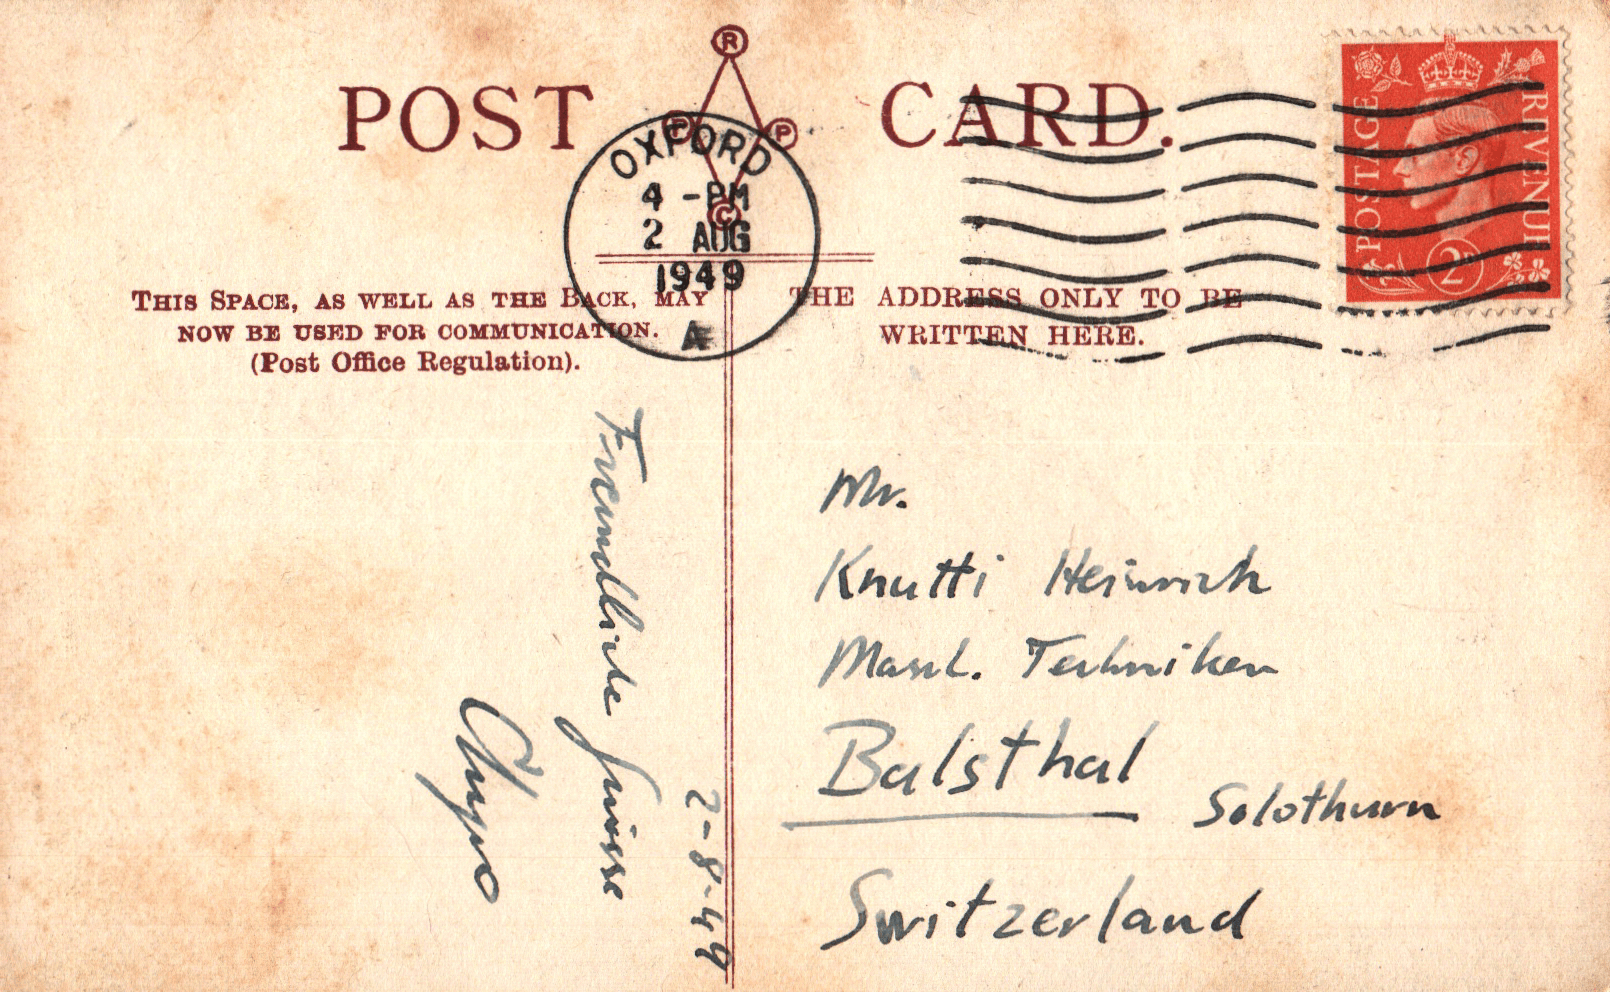 POST CARD.
R
P P
C
OXFORD
4 - PM
2 AUG
1949
A
POSTAGE
REVENUE
2D
THIS SPACE, AS WELL AS THE BACK, MAY
NOW BE USED FOR COMMUNICATION.
(Post Office Regulation).
THE ADDRESS ONLY TO BE
WRITTEN HERE.
2-8-49
Freundliche Grüsse
Mr.
Knutti Heinrich
Masch. Techniker
Balsthal
Solothurn
Switzerland